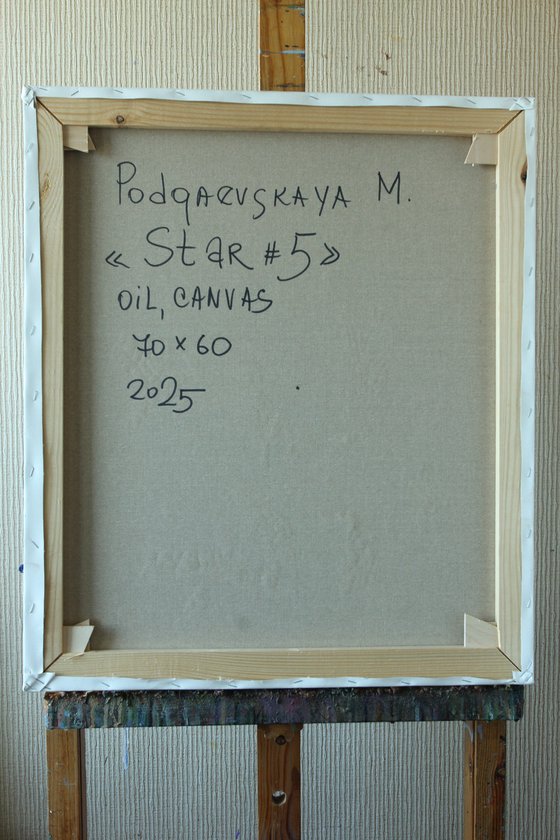 Podgaevskaya M.
« Star #5 »
Oil, CANVAS
70 x 60
2025